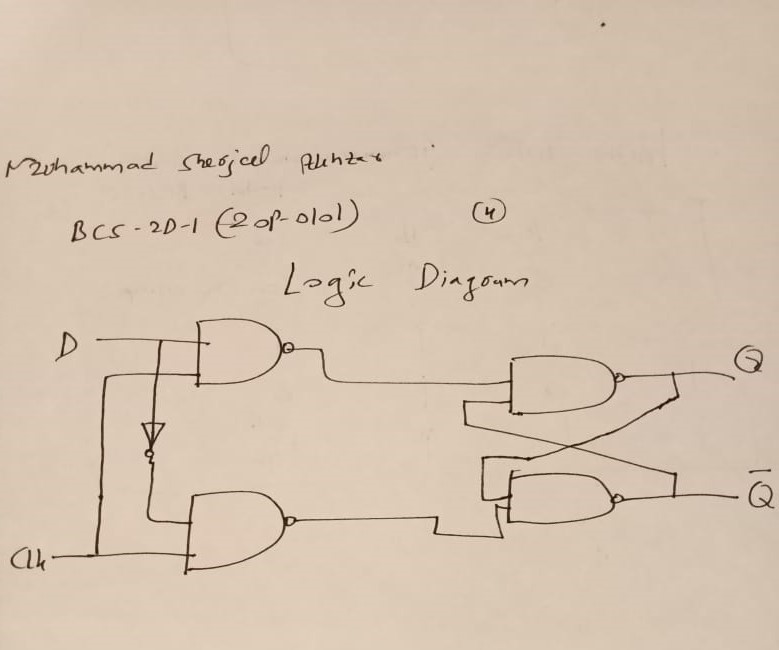 Muhammad Sherjeel Akhtar
BCS-2D-1 (20P-0101)
(4)
Logic Diagram
D
Q
Q̅
Clk